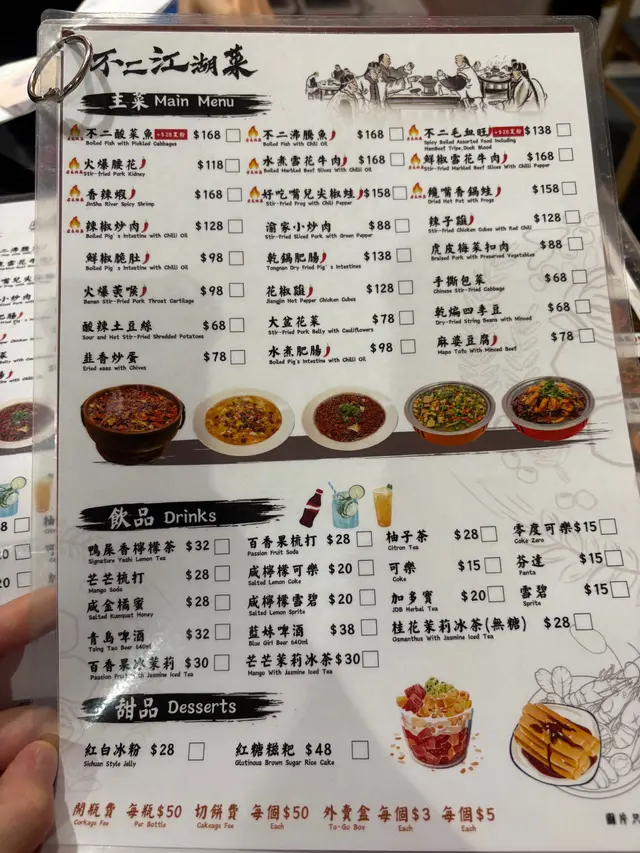 不二江湖菜
主菜 Main Menu
不二酸菜魚 +$28 $168
Boiled Fish with Pickled Cabbages
不二沸騰魚 $168
Boiled Fish with Chili Oil
不二毛血旺 +$28 $138
Spicy Boiled Assorted Food Including
HamBeef Tripe,Duck Blood
火爆腰花 $118
Stir-fried Pork Kidney
水煮雪花牛肉 $168
Boiled Marbled Beef Slices With Chilli Oil
鮮椒雪花牛肉 $168
Stir-fried Marbled Beef Slices With Chilli Pepper
香辣蝦 $168
JinSha River Spicy Shrimp
好吃嘴兒尖椒蛙 $158
Stir-fried Frog with Chili Pepper
饞嘴香鍋蛙 $158
Dried Hot Pot with Frogs
辣椒炒肉 $128
Boiled Pig's Intestine with Chilli Oil
渝家小炒肉 $88
Stir-fried Sliced Pork with Green Pepper
辣子雞 $128
Stir-fried Chicken Cubes with Red Chili
鮮椒脆肚 $98
Boiled Pig's Intestine with Chilli Oil
乾鍋肥腸 $138
Tongnan Dry Fried Pig's Intestines
虎皮梅菜扣肉 $88
Braised Pork with Preserved Vegetables
火爆黃喉 $98
Banan Stir-fried Pork Throat Cartilage
花椒雞 $128
Jiangjin Hot Pepper Chicken Cubes
手撕包菜 $68
Chinese Stir-fried Cabbage
酸辣土豆絲 $68
Sour and Hot Stir-Fried Shredded Potatoes
大盆花菜 $78
Stir-fried Pork Belly with Cauliflowers
乾煸四季豆 $68
Dry-Fried String Beans with Minced
韭香炒蛋 $78
Fried eggs with Chives
水煮肥腸 $98
Boiled Pig's Intestine with Chilli Oil
麻婆豆腐 $78
Mapo Tofu With Minced Beef
飲品 Drinks
鴨屎香檸檬茶 $32
Signature Yashi Lemon Tea
百香果梳打 $28
Passion Fruit Soda
柚子茶 $28
Citron Tea
零度可樂 $15
Coke Zero
芒芒梳打 $28
Mango Soda
咸檸檬可樂 $20
Salted Lemon Coke
可樂 $15
Coke
芬達 $15
Fanta
咸金橘蜜 $28
Salted Kumquat Honey
咸檸檬雪碧 $20
Salted Lemon Sprite
加多寶 $20
JDB Herbal Tea
雪碧 $15
Sprite
青島啤酒 $32
Tsing Tao Beer 640ml
藍妹啤酒 $38
Blue Girl Beer 640ml
桂花茉莉冰茶(無糖) $28
Osmanthus With Jasmine Iced Tea
百香果冰茉莉 $30
Passion Fruit With Jasmine Iced Tea
芒芒茉莉冰茶 $30
Mango With Jasmine Iced Tea
甜品 Desserts
紅白冰粉 $28
Sichuan Style Jelly
紅糖糍粑 $48
Glutinous Brown Sugar Rice Cake
開瓶費 每瓶$50 切餅費 每個$50 外賣盒 每個$3 每個$5
Corkage Fee Per Bottle Cakeage Fee Each To-Go Box Each Each